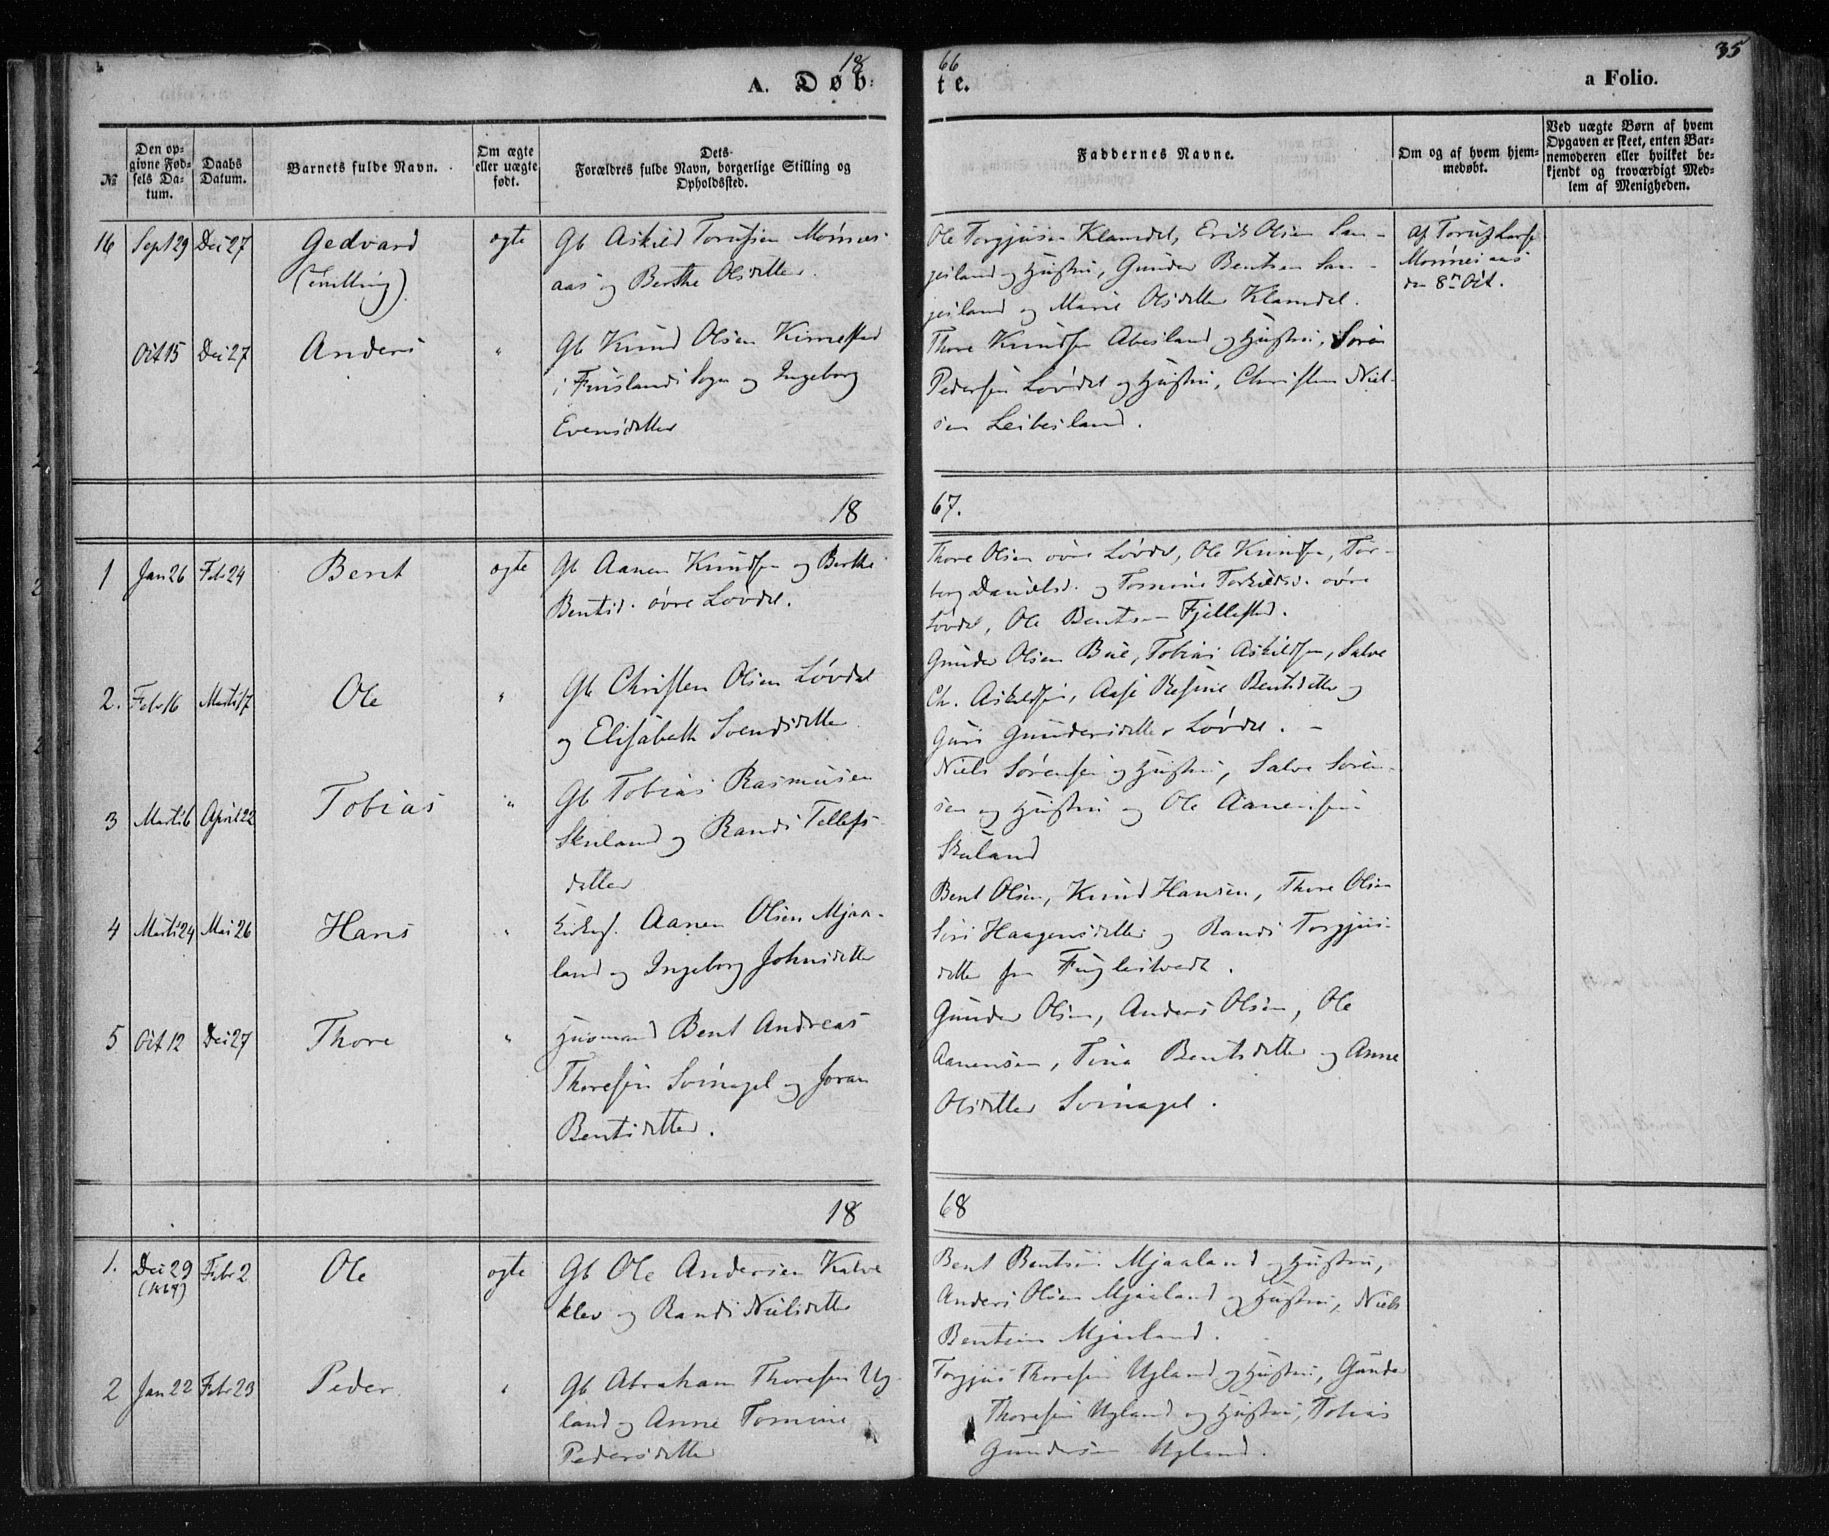 18
66
35
A. Døb-
te.
a Folio.
№
Den op-
givne Fød-
sels Da-
tum.
Daabs
Datum.
Barnets fulde Navn.
Om ægte
eller uægte
født.
Dets
Forældres fulde Navn, borgerlige Stilling og
Opholdssted.
Faddernes Navne.
Om og af hvem hjem-
medøbt.
Ved uægte Børn af hvem
Opgaven er skeet, enten Bar-
nemoderen eller hvilket be-
kjendt og troværdigt Med-
lem af Menigheden.
16 Sept 29 Dec 27 Gedvard ægte Gb Askild
(tvilling) aas og Berthe Olsdatter.
Ole Torgjusen Klamdal, Erik Olsen Lau-
jesland og Hustru, Gunder Bentsen Lau-
jesland og Marie Olsdatter Klamdal.
den 8de Oct.
Oct 15 Dec 27 Anders " Gb Knud Olsen
i Finslands Sogn og Ingeborg
Evensdatter
Thore Knudsen Abesland og Hustru, Søren
Pedersen Løvdal og Hustru, Christen Niel-
sen Leibesland.
18
67.
1 Jan 26 Febr 24 Bent ægte Gb Aanen Knudsen og Berthe
Bentsd. øvre Løvdal.
Thore Olsen øvre Løvdal, Ole Knudsen, Tor-
borg Danielsd. og Tomine Torkildsd. øvre
Løvdal, Ole Bentsen Fjellestad.
2. Febr 16 Marts 17 Ole " Gb Christen Olsen Løvdal
og Elisabeth Svendsdatter
Gunder Olsen Bue, Tobias Askildsen, Salve
Ch. Askildsen, Aase Bentsdatter og
Guri Gundersdatter Løvdal. -
3 Marts 6 April 22 Tobias " Gb Tobias Rasmusen
Skuland og Randi Tellefs-
datter
Niels Sørensen og Hustru, Salve Søren-
sen og Hustru og Ole Aanensen
Skuland
4 Marts 24 Mai 26 Hans " Aanen Olsen Mjaa-
land og Ingeborg Johnsdatter
Bent Olsen, Knud Hansen, Thore Olsen
Siri Haagensdatter og Randi Torgjus-
datter fra Fuglestvedt.
5 Oct 12 Dec 27 Thore " Husmand Bent Andreas
Thoresen Svinagel og Joran
Bentsdatter.
Gunder Olsen, Anders Olsen, Ole
Aanensen, Tina Bentsdatter og Anne
Olsdatter Svinagel.
18
68
1. Dec 29 Febr 2 Ole ægte Gb Ole Andersen Kalve
klev og Randi Nielsdatter
Bent Bentsen Mjaaland og Hustru,
Anders Olsen Mjaaland og Hustru, Niels
Bentsen Mjaaland.
2 Jan 22 Febr 23 Peder " Gb Abraham Thoresen Ug-
land og Anne Tomine
Pedersdatter
Torgjus Thoresen Ugland og Hustru, Gunder
Thoresen Ugland og Hustru, Tobias
Gundersen Ugland.